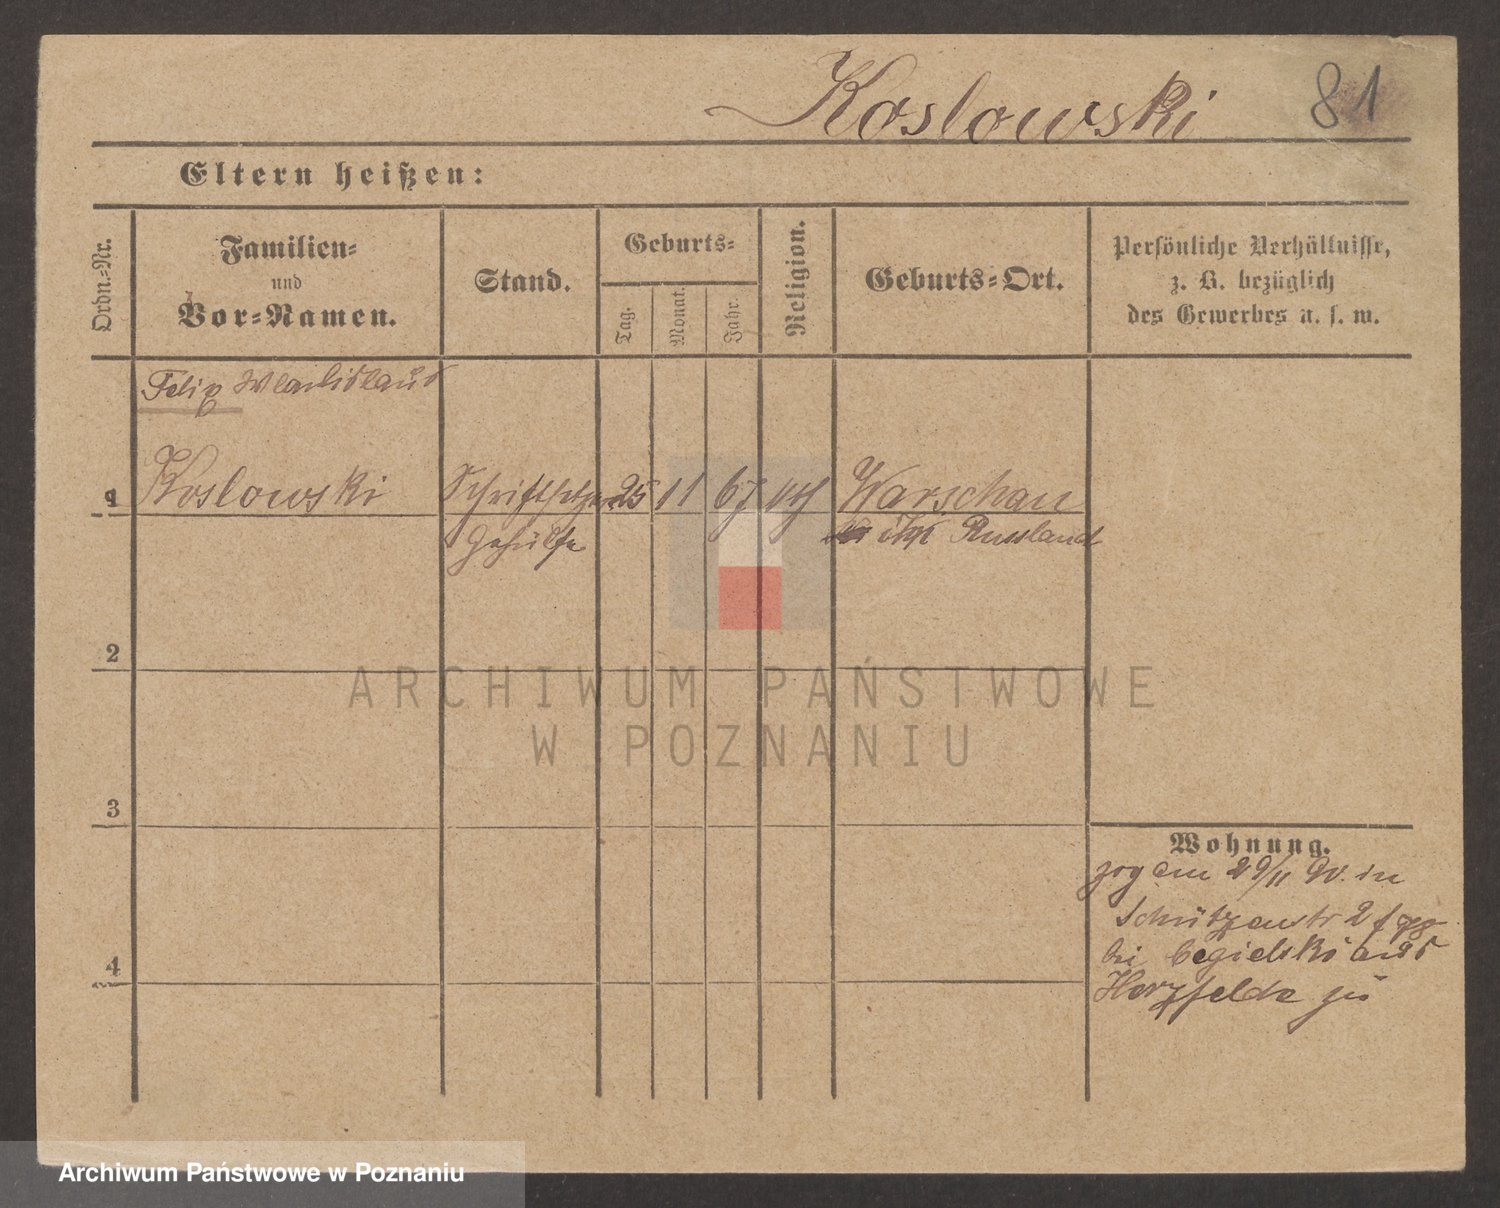 Koslowski 81
Eltern heißen:
Ordn.-Nr.
Familien-
und
Vor-Namen.
Stand.
Geburts-
Tag.
Monat.
Jahr.
Religion.
Geburts-Ort.
Persönliche Verhältnisse,
z. B. bezüglich
des Gewerbes u. s. w.
Felix Wladislaus
1 Koslowski Schriftsetzer 25 11 67 Warschau
Gehülfe Russland
2
3
4
Wohnung.
zog am 29/11 90. in
Schützenstr 2
bei Cegielski aus
Herzfelde zu
ARCHIWUM PAŃSTWOWE
W POZNANIU
Archiwum Państwowe w Poznaniu